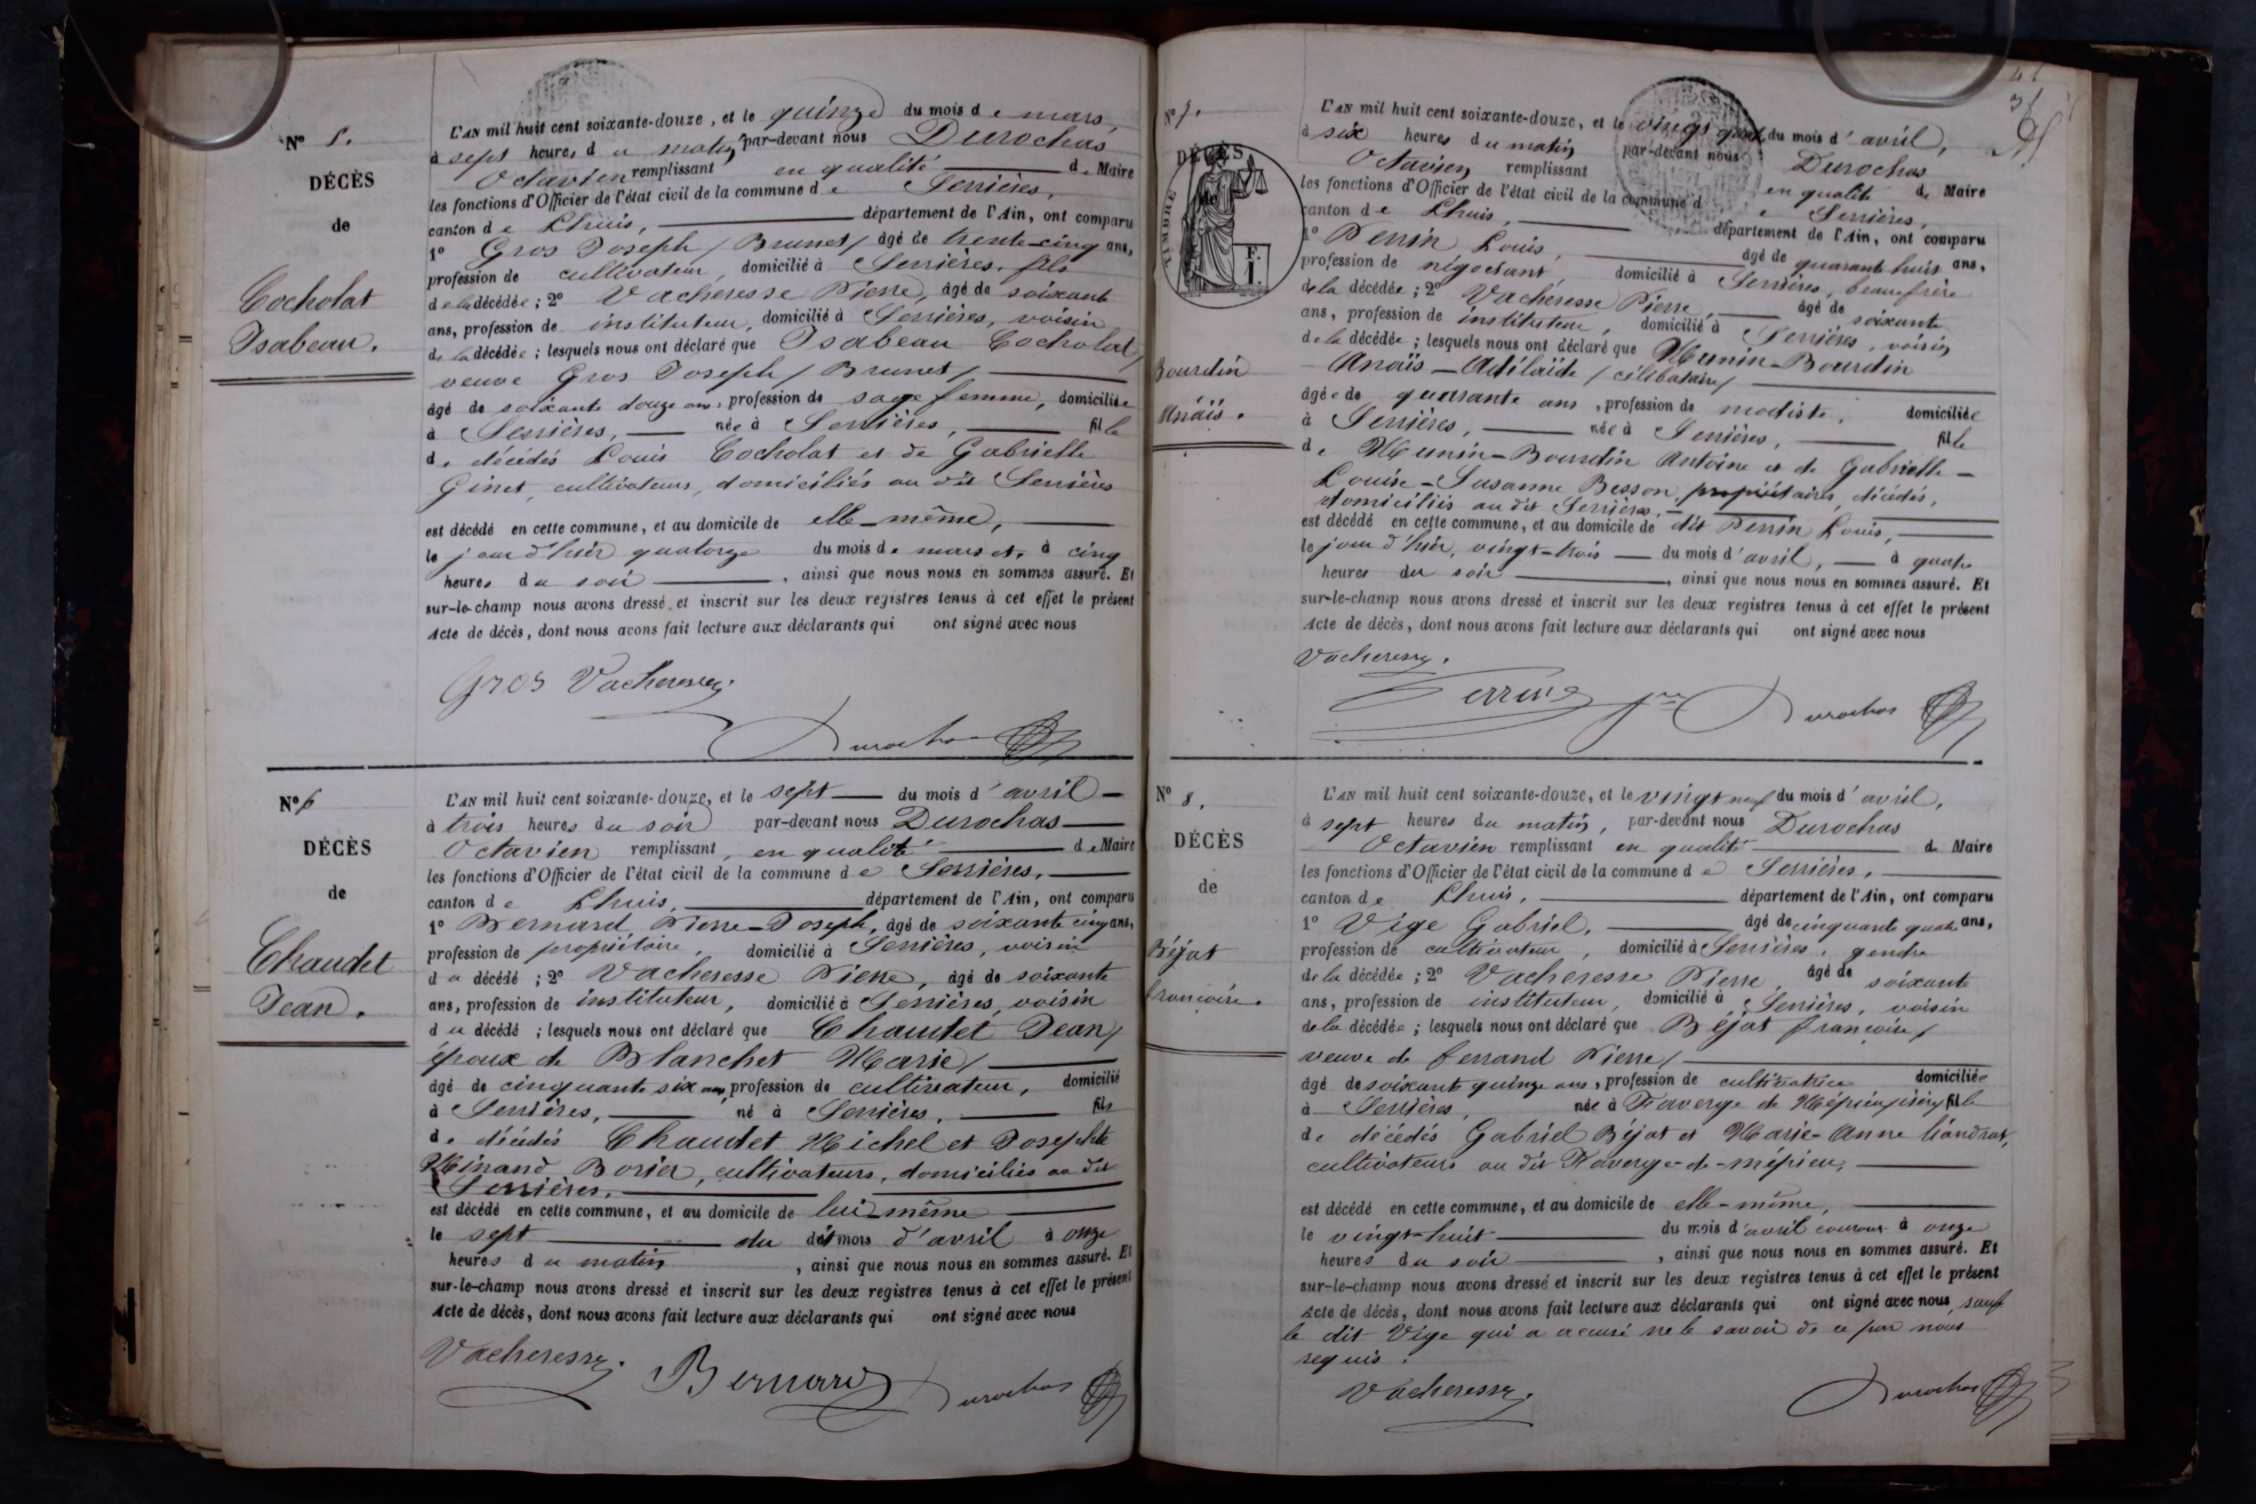 N° 5.
DÉCÈS
de
Cocholat
Isabeau.
L'AN mil huit cent soixante-douze, et le quinze du mois de mars,
à sept heures du matin par-devant nous Durochas
Octavien remplissant en qualité de Maire
les fonctions d'Officier de l'état civil de la commune de Serrières,
canton de Lhuis, département de l'Ain, ont comparu
1° Gros Joseph / Brunet / âgé de trente-cinq ans,
profession de cultivateur, domicilié à Serrières, fils
de la décédée ; 2° Vacheresse Pierre, âgé de soixante
ans, profession de instituteur, domicilié à Serrières, voisin
de la décédée ; lesquels nous ont déclaré que Isabeau Cocholat,
veuve Gros Joseph / Brunet /
âgé de soixante douze ans, profession de sage femme, domiciliée
à Serrières, née à Serrières, fille
de décédés Louis Cocholat et de Gabrielle
Ginet, cultivateurs, domiciliés au dit Serrières
est décédé en cette commune, et au domicile de elle-même,
le jour d'hier quatorze du mois de mars et, à cinq
heures du soir, ainsi que nous nous en sommes assuré. Et
sur-le-champ nous avons dressé et inscrit sur les deux registres tenus à cet effet le présent
Acte de décès, dont nous avons fait lecture aux déclarants qui ont signé avec nous
Gros Vacheresse
Durochas
N° 6
DÉCÈS
de
Chaudet
Jean.
L'AN mil huit cent soixante-douze, et le sept du mois d'avril
à trois heures du soir par-devant nous Durochas
Octavien remplissant, en qualité de Maire
les fonctions d'Officier de l'état civil de la commune de Serrières,
canton de Lhuis, département de l'Ain, ont comparu
1° Bernard Pierre-Joseph, âgé de soixante cinq ans,
profession de propriétaire, domicilié à Serrières, voisin
du décédé ; 2° Vacheresse Pierre, âgé de soixante
ans, profession de instituteur, domicilié à Serrières, voisin
du décédé ; lesquels nous ont déclaré que Chaudet Jean /
époux de Blanchet Marie /
âgé de cinquante six ans, profession de cultivateur, domicilié
à Serrières, né à Serrières, fils
de décédés Chaudet Michel et Josephte
Minand Borier, cultivateurs, domiciliés au dit
Serrières,
est décédé en cette commune, et au domicile de lui-même
le sept du dit mois d'avril à onze
heures du matin, ainsi que nous nous en sommes assuré. Et
sur-le-champ nous avons dressé et inscrit sur les deux registres tenus à cet effet le présent
Acte de décès, dont nous avons fait lecture aux déclarants qui ont signé avec nous
Vacheresse. Bernard Durochas
N° 7.
DÉCÈS
de
TIMBRE
F. I.
Bourdin
Anaïs.
L'AN mil huit cent soixante-douze, et le vingt quatre du mois d'avril,
à six heures du matin par-devant nous Durochas
Octavien remplissant en qualité de Maire
les fonctions d'Officier de l'état civil de la commune de Serrières,
canton de Lhuis, département de l'Ain, ont comparu
1° Perrin Louis, âgé de quarante huit ans,
profession de négociant, domicilié à Serrières, beau frère
de la décédée ; 2° Vacheresse Pierre, âgé de soixante
ans, profession de instituteur, domicilié à Serrières, voisin
de la décédée ; lesquels nous ont déclaré que Munin-Bourdin
Anaïs-Adélaïde / célibataire /
âgée de quarante ans, profession de modiste, domiciliée
à Serrières, née à Serrières, fille
de Munin-Bourdin Antoine et de Gabrielle-
Louise-Susanne Besson, propriétaires, décédés,
domiciliés au dit Serrières,
est décédé en cette commune, et au domicile de dit Perrin Louis,
le jour d'hier, vingt-trois du mois d'avril, à quatre
heures du soir, ainsi que nous nous en sommes assuré. Et
sur-le-champ nous avons dressé et inscrit sur les deux registres tenus à cet effet le présent
Acte de décès, dont nous avons fait lecture aux déclarants qui ont signé avec nous
Vacheresse.
Perrin Durochas
N° 8.
DÉCÈS
de
Béjat
françoise.
L'AN mil huit cent soixante-douze, et le vingt neuf du mois d'avril,
à sept heures du matin, par-devant nous Durochas
Octavien remplissant en qualité de Maire
les fonctions d'Officier de l'état civil de la commune de Serrières,
canton de Lhuis, département de l'Ain, ont comparu
1° Vige Gabriel, âgé de cinquante quatre ans,
profession de cultivateur, domicilié à Serrières, gendre
de la décédée ; 2° Vacheresse Pierre, âgé de soixante
ans, profession de instituteur, domicilié à Serrières, voisin
de la décédée ; lesquels nous ont déclaré que Béjat françoise /
veuve de ferrand Pierre /
âgé de soixante quinze ans, profession de cultivatrice domiciliée
à Serrières, née à Faverge de Mépieu fille
de décédés Gabriel Béjat et Marie-Anne
cultivateurs au dit Faverge-de-mépieu,
est décédé en cette commune, et au domicile de elle-même,
le vingt-huit du mois d'avril courant à onze
heures du soir, ainsi que nous nous en sommes assuré. Et
sur-le-champ nous avons dressé et inscrit sur les deux registres tenus à cet effet le présent
Acte de décès, dont nous avons fait lecture aux déclarants qui ont signé avec nous, sauf
le dit Vige qui a accusé ne le savoir de ce par nous
requis.
Vacheresse. Durochas